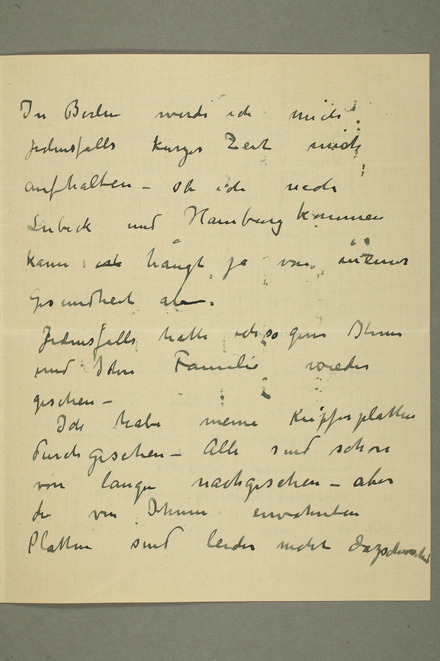 In Berlin werde ich mich
jedenfalls kurze Zeit mich
aufhalten – ob ich nach
Lübeck und Hamburg kommen
kann hängt ja von meiner
Gesundheit ab.
Jedenfalls hätte ich so gern Ihnen
und Ihre Familie wieder
gesehen –
Ich habe meine Kupferplatten
durchgesehen – Alle sind schon
von lange nachgesehen – aber
die von Ihnen erwähnten
Platten sind leider nicht dazwischen